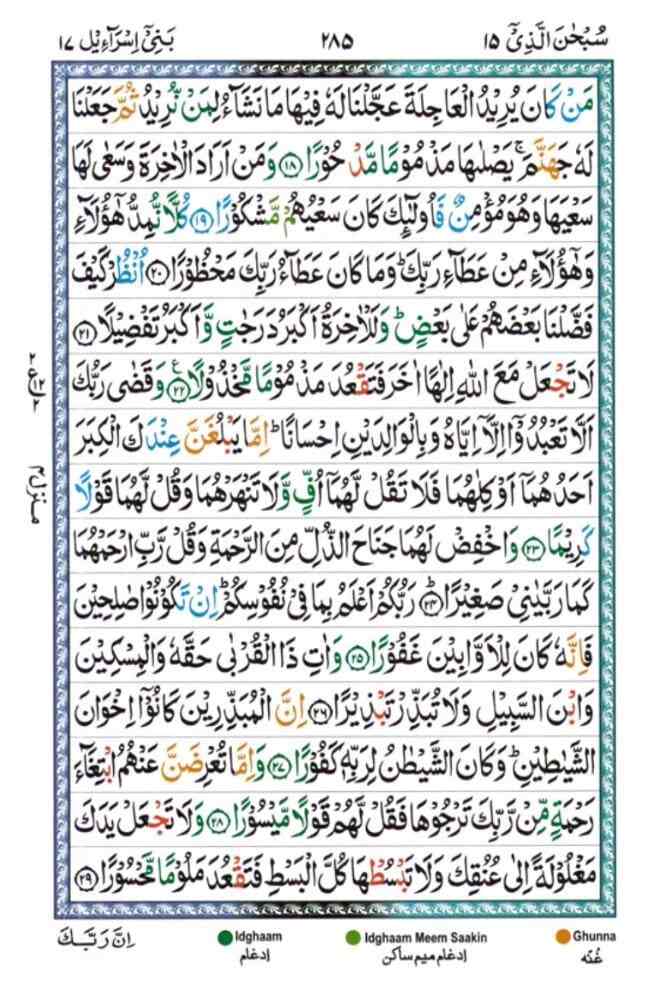 سُبْحٰنَ الَّذِیْٓ ۱۵
۲۸۵
بَنِیْٓ اِسْرَآءِیْل ۱۷
مَنْ كَانَ یُرِیْدُ الْعَاجِلَةَ عَجَّلْنَا لَهٗ فِیْهَا مَا نَشَآءُ لِمَنْ نُّرِیْدُ ثُمَّ جَعَلْنَا
لَهٗ جَهَنَّمَ ۚ یَصْلٰىهَا مَذْمُوْمًا مَّدْحُوْرًا ﴿۱۸﴾ وَمَنْ اَرَادَ الْاٰخِرَةَ وَسَعٰى لَهَا
سَعْیَهَا وَهُوَ مُؤْمِنٌ فَاُولٰٓئِكَ كَانَ سَعْیُهُمْ مَّشْكُوْرًا ﴿۱۹﴾ كُلًّا نُّمِدُّ هٰۤؤُلَآءِ
وَهٰۤؤُلَآءِ مِنْ عَطَآءِ رَبِّكَ ؕ وَمَا كَانَ عَطَآءُ رَبِّكَ مَحْظُوْرًا ﴿۲۰﴾ اُنْظُرْ كَیْفَ
فَضَّلْنَا بَعْضَهُمْ عَلٰى بَعْضٍ ؕ وَلَلْاٰخِرَةُ اَكْبَرُ دَرَجٰتٍ وَّاَكْبَرُ تَفْضِیْلًا ﴿۲۱﴾
لَا تَجْعَلْ مَعَ اللّٰهِ اِلٰهًا اٰخَرَ فَتَقْعُدَ مَذْمُوْمًا مَّخْذُوْلًا ﴿۲۲﴾ وَقَضٰى رَبُّكَ
اَلَّا تَعْبُدُوْۤا اِلَّاۤ اِیَّاهُ وَبِالْوَالِدَیْنِ اِحْسَانًا ؕ اِمَّا یَبْلُغَنَّ عِنْدَكَ الْكِبَرَ
اَحَدُهُمَاۤ اَوْ كِلٰهُمَا فَلَا تَقُلْ لَّهُمَاۤ اُفٍّ وَّلَا تَنْهَرْهُمَا وَقُلْ لَّهُمَا قَوْلًا
كَرِیْمًا ﴿۲۳﴾ وَاخْفِضْ لَهُمَا جَنَاحَ الذُّلِّ مِنَ الرَّحْمَةِ وَقُلْ رَّبِّ ارْحَمْهُمَا
كَمَا رَبَّیٰنِیْ صَغِیْرًا ﴿۲۴﴾ؕ رَبُّكُمْ اَعْلَمُ بِمَا فِیْ نُفُوْسِكُمْ ؕ اِنْ تَكُوْنُوْا صٰلِحِیْنَ
فَاِنَّهٗ كَانَ لِلْاَوَّابِیْنَ غَفُوْرًا ﴿۲۵﴾ وَاٰتِ ذَا الْقُرْبٰى حَقَّهٗ وَالْمِسْكِیْنَ
وَابْنَ السَّبِیْلِ وَلَا تُبَذِّرْ تَبْذِیْرًا ﴿۲۶﴾ اِنَّ الْمُبَذِّرِیْنَ كَانُوْۤا اِخْوَانَ
الشَّیٰطِیْنِ ؕ وَكَانَ الشَّیْطٰنُ لِرَبِّهٖ كَفُوْرًا ﴿۲۷﴾ وَاِمَّا تُعْرِضَنَّ عَنْهُمُ ابْتِغَآءَ
رَحْمَةٍ مِّنْ رَّبِّكَ تَرْجُوْهَا فَقُلْ لَّهُمْ قَوْلًا مَّیْسُوْرًا ﴿۲۸﴾ وَلَا تَجْعَلْ یَدَكَ
مَغْلُوْلَةً اِلٰى عُنُقِكَ وَلَا تَبْسُطْهَا كُلَّ الْبَسْطِ فَتَقْعُدَ مَلُوْمًا مَّحْسُوْرًا ﴿۲۹﴾
منزل ۴
Ghunna
غُنّه
Idghaam Meem Saakin
ادغام میم ساکن
Idghaam
ادغام
اِنَّ رَبَّكَ